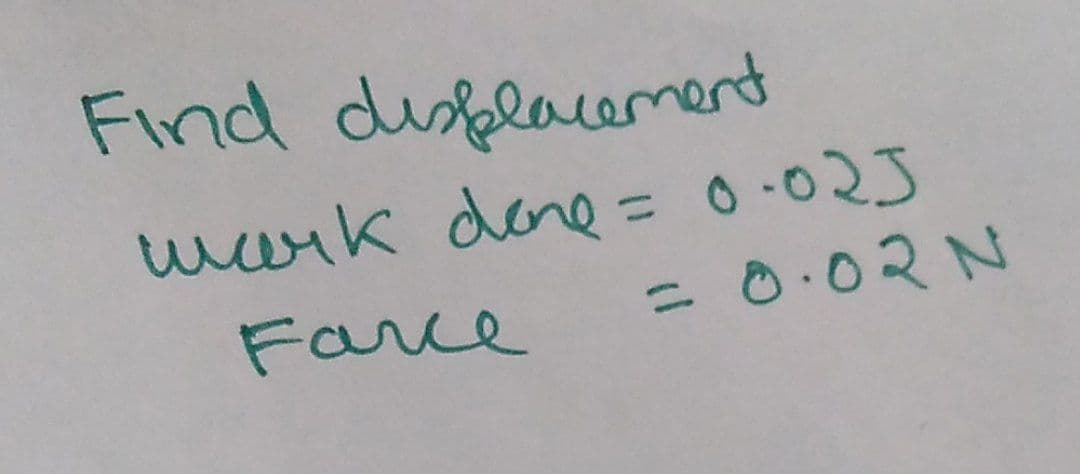 Find displacement
work done = 0.02J
Force = 0.02 N